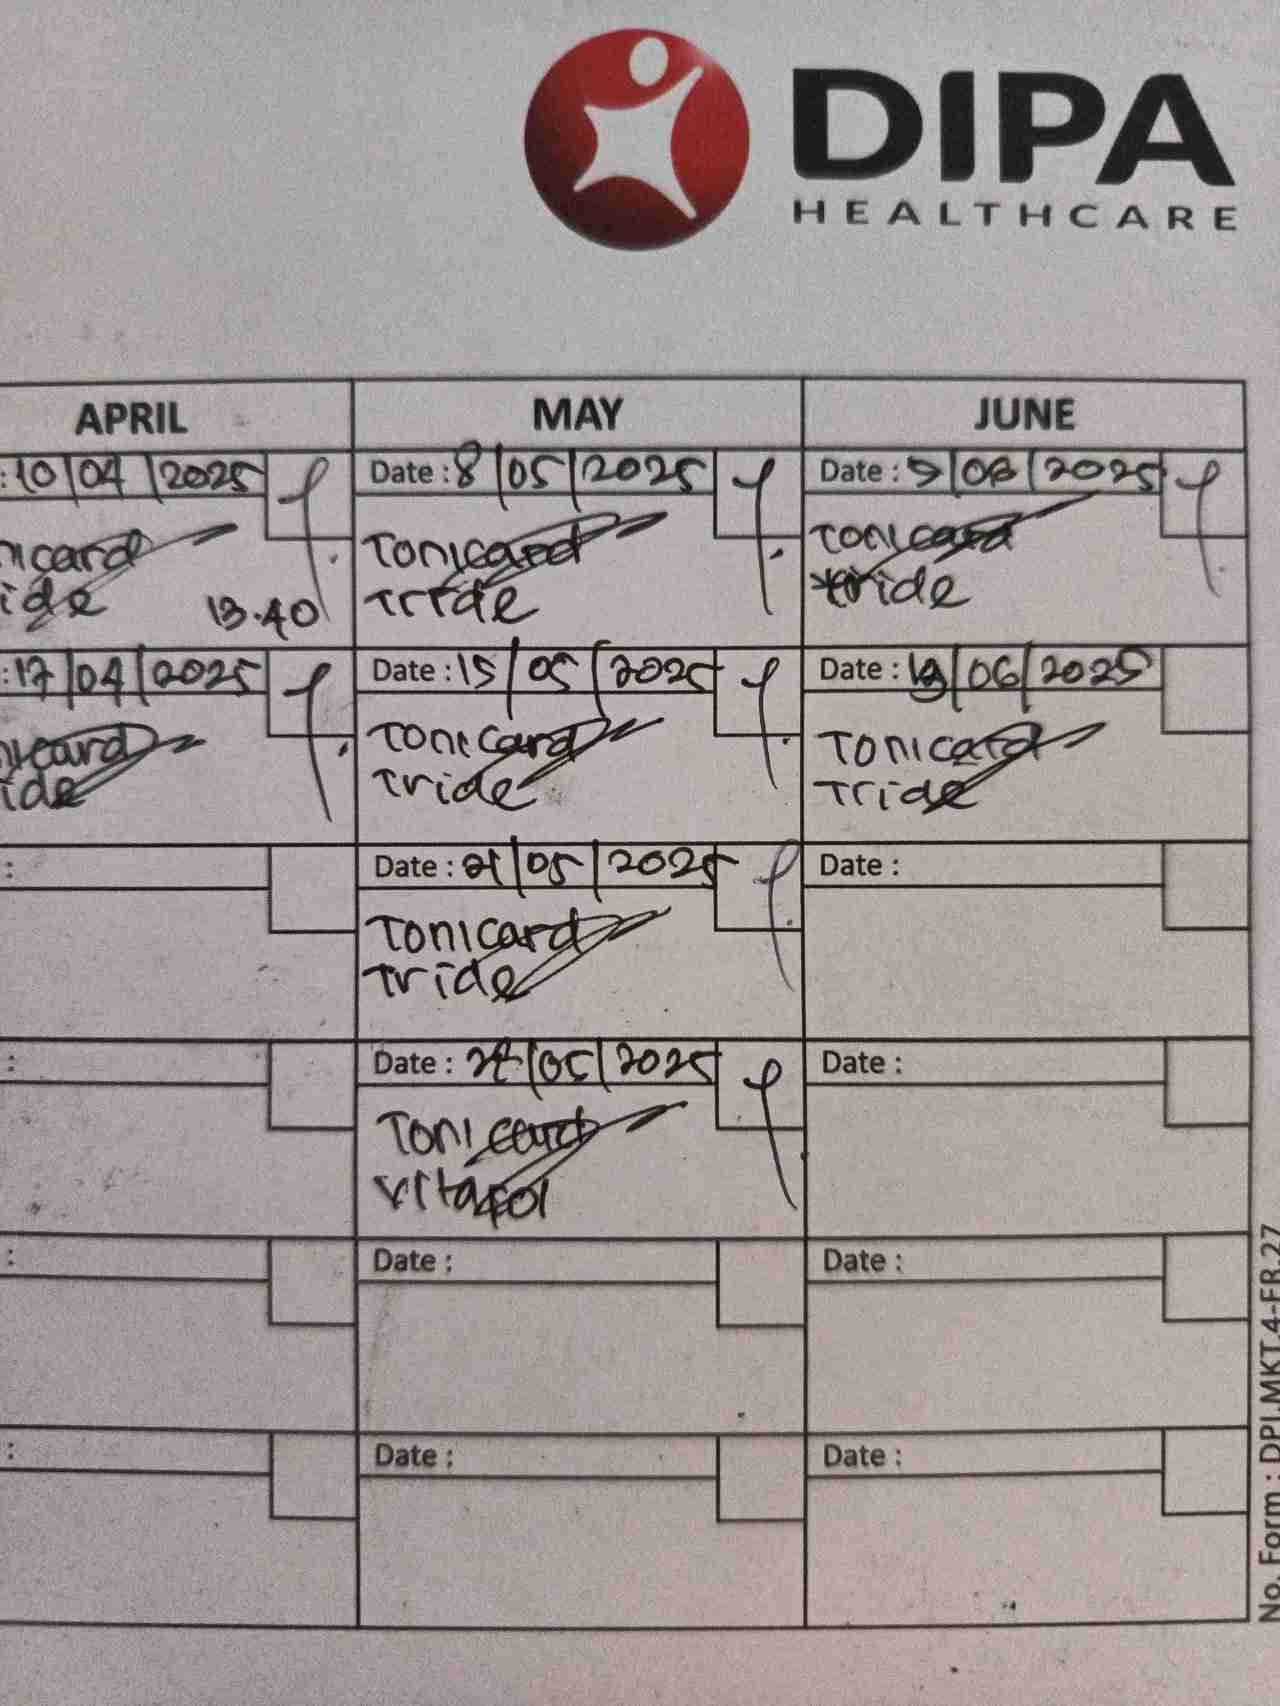 DIPA
HEALTHCARE
APRIL
MAY
JUNE
: 10/04/2025
nicard
ide
13.40
: 17/04/2025
nicard
ide
:
:
:
:
Date : 8/05/2025
Tonicard
Tride
Date : 15/05/2025
Tonicard
Tride
Date : 21/05/2025
Tonicard
Tride
Date : /05/2025
Tonicard
Vitafol
Date :
Date :
Date : /2025
Tonicard
tride
Date : /06/2025
Tonicard
Tride
Date :
Date :
Date :
Date :
No. Form : DPI.MKT.4-FR.27